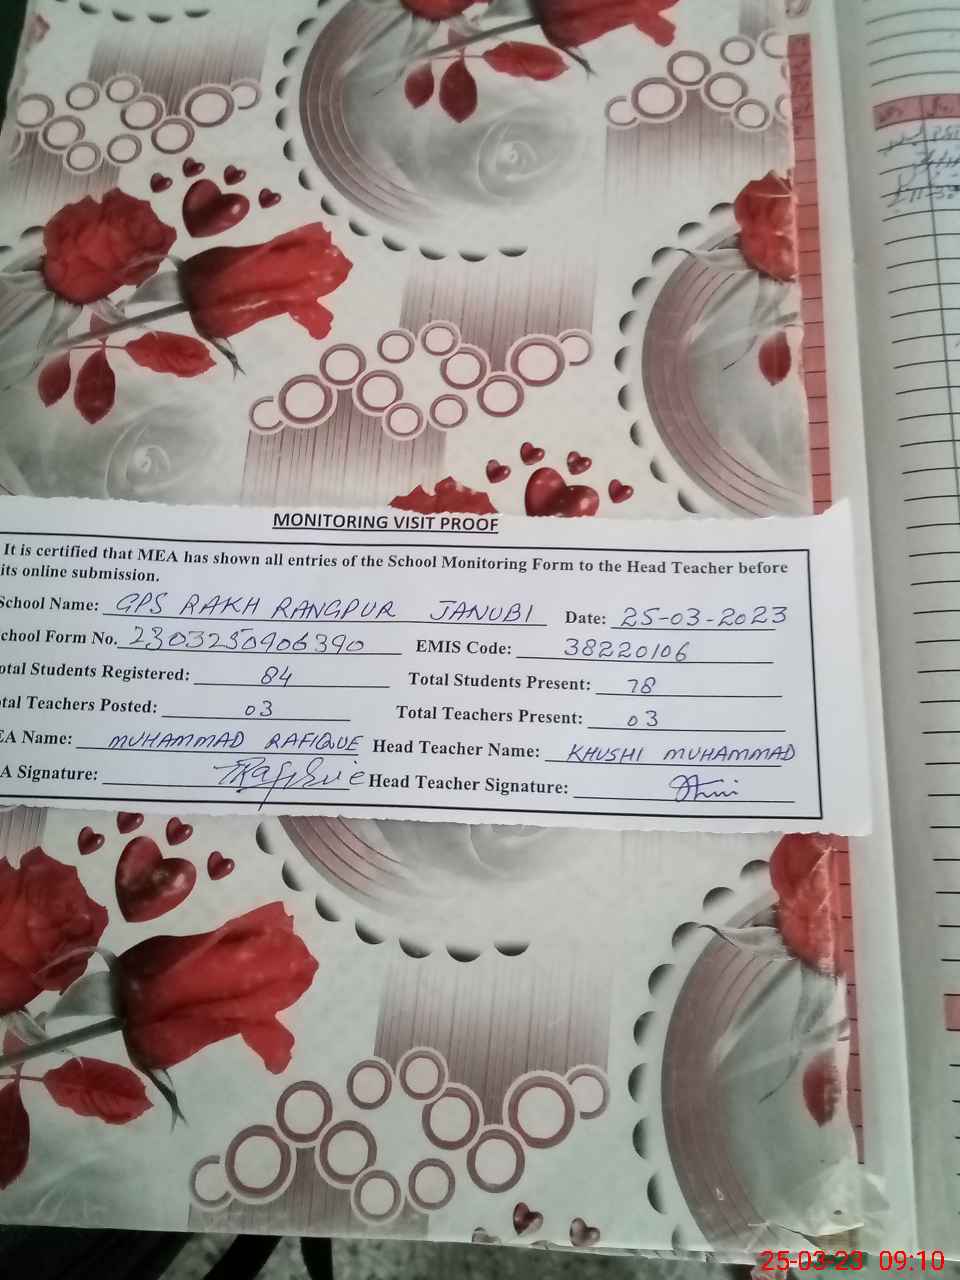 MONITORING VISIT PROOF
It is certified that MEA has shown all entries of the School Monitoring Form to the Head Teacher before
its online submission.
School Name: GPS RAKH RANGPUR JANUBI Date: 25-03-2023
chool Form No. 2303250906390 EMIS Code: 38220106
otal Students Registered: 84 Total Students Present: 78
tal Teachers Posted: 03 Total Teachers Present: 03
EA Name: MUHAMMAD RAFIQUE Head Teacher Name: KHUSHI MUHAMMAD
A Signature: Head Teacher Signature:
25-03-23 09:10